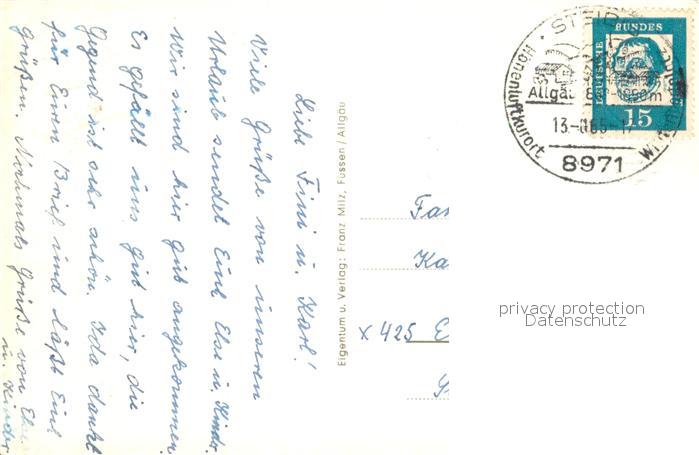 Liebe Fini u. Karl!
Viele Grüße von unseren
Urlaub sendet Euch Else u. Kinder.
Wir sind hier gut angekommen.
Es gefällt uns gut hier, die
Gegend ist sehr schön. Ida dankt
für Euren Brief und läßt Euch
Grüßen. Nochmals Grüße von Else
u. Kinder
Eigentum u. Verlag: Franz Milz, Füssen/Allgäu
Fam
Ka
x 425 E
STEIB
Höhenluftkurort
Allgäu
1050m
13.
8971
DEUTSCHE
BUNDES
15
privacy protection
Datenschutz